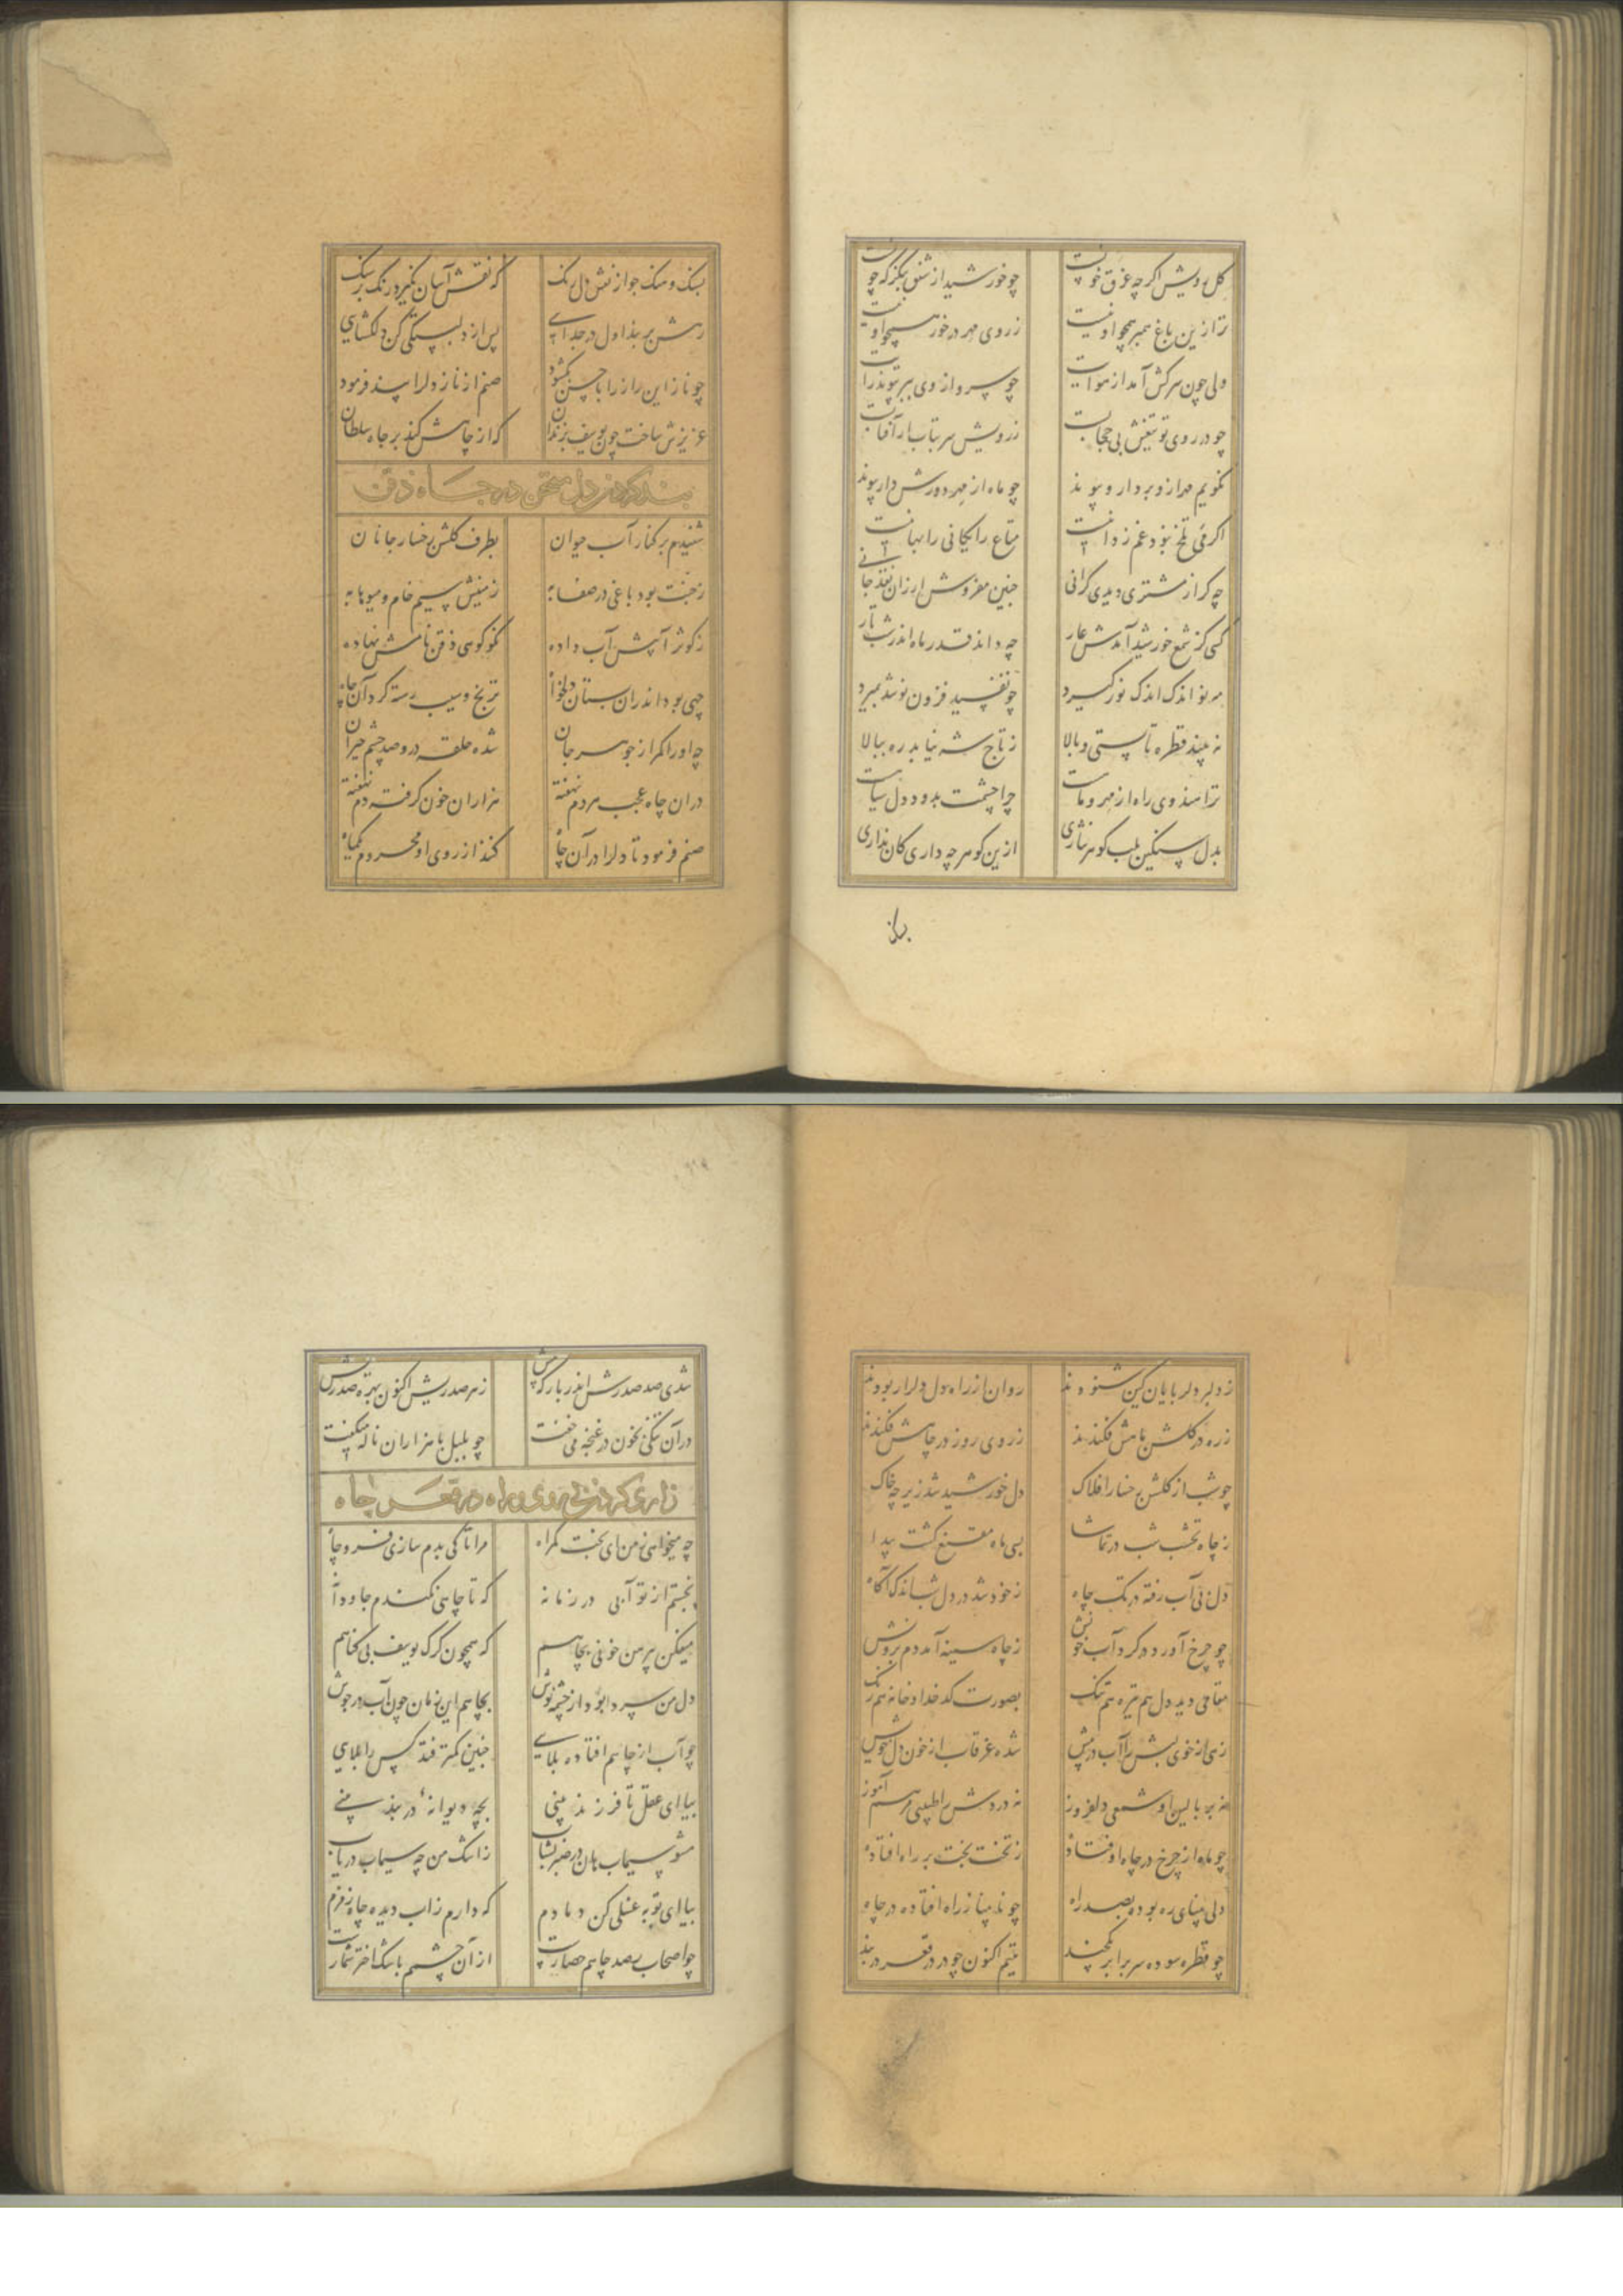 گل رویش اگرچه غرق خونست چو خورشید از شفق بنگر که چونست
ترا زین باغ همبر همچو او نیست ز روی مهر در خور همچو او نیست
ولی چون سرکش آمد از هوایت چو سرو از وی ببر پیوند رایت
چو در روی تو تیغش بی حجابست ز رویش سر بتاب ار آفتابست
نگویم مهر ازو بردار و پیوند چو ماه از مهر دورش دار پیوند
اگر می تلخ نبود غم زدا نیست متاع رایگانی را بها نیست
چه گر از مشتری دیدی گرانی چنین مفروش ارزان نقد جانی
کسی کز شمع خورشید آمدش عار چه داند قدر ماه اندر شب تار
مه نو اندک اندک نور گیرد چو تفسید فزون نوشد بمیرد
نه بیند قطره تا پستی و بالا ز تاج شه نیابد ره ببالا
ترا هندوی راه از مهر و ماهست چرا چشمت بدود دل سیاهست
بدل سنگین بلب گوهر نثاری ازین گوهر چه داری کان نداری
بران
بسنگ و سنگ جو از نقش دل رنگ که نقش آسان نگیرد رنگ بر سنگ
رهش بر بند اول در جدایی پس از دلبستگی کن دلگشایی
چو ناز این راز را با حسن بگشود صنم از ناز دلرا بند فرمود
عزیزش ساخت چون یوسف بزندان که از چاهش کند بر جاه سلطان
بند کردن دل محزن در چاه ذقن
شنیدم بر کنار آب حیوان بطرف گلشن رخسار جانان
ز جنت بود باغی در صفا به زمینش سیم خام و میوها به
ز کوثر آبش آب داده نکوگویی ذقن نامش نهاده
چهی بود اندران بستان دلخواه ترنج و سیب رسته گرد آن چاه
چه او را کمر از جوهر جان شده حلقه درو صد چشم حیران
دران چاه عجب مردم نهفته هزاران خون گرفته دم نهفته
صنم فرمود تا دلرا در آن چاه کنند از روی او محروم گمراه
ز دلبر دلربایان کین شنودند روان از راه دل دلدار بودند
ز ره در گلشن نامش فکندند ز روی روز در چاهش فکندند
چو شب از گلشن رخسار افلاک دل خورشید شد زیر چه خاک
ز چاه نخشب شب در تماشا بسی ماه مقنع گشت پیدا
دل بی آب رفته در تک چاه ز خود شد در دل شب اندک آگاه
چو چرخ آورد در گرد آب خونش ز چاه سینه آمد دم برونش
مقامی دید دل هم تیره هم تنگ بصورت کدخدا و خانه همرنگ
زمی از خوی بشش آب در پیش شده غرقاب از خون دل خویش
نه بر بالین او شمعی دلفروز نه دردش را طبیبی مرهم آموز
چو ماه از چرخ در چاه اوفتاده ز تخت بخت بر راه افتاده
دلی بینای ره بوده بصد راه چو نابینا ز راه افتاده در چاه
چو قطره سوده سر بر ابر یکچند یتیم اکنون چو در در قعر در بند
شدی صد صدرش اندر بارگه پیش ز هر صدریش اکنون بهره صد ریش
در آن تنگی بخون در غنچه می خفت چو بلبل با هزاران ناله میگفت
زاری کردن بی روی و راه در قعر چاه
چه میخواهی ز من ای بخت گمراه مرا تا کی بدم سازی فرو چاه
نجستم از تو آبی در زمانه که تا چاهی نکندم جاودانه
میفکن پر من خونی بچاهم که همچون گرگ یوسف بی گناهم
دل من سرد ابود از چشمه نوش بچاهم این زمان چون آب در جوش
چو آب از چاهم افتاده بلایی چنین کمتر فتد کس را بلایی
بیا ای عقل تا فرزند بینی بچه دیوانه در بند بینی
مشو سیماب هان در صبر بشتاب ز اشک من چه سیماب دریاب
بیا ای توبه غسلی کن دمادم که دارم ز آب دیده چاه زمزم
چو اصحاب رصد چاهم حصارست از آن چشمم باشک اختر شمارست